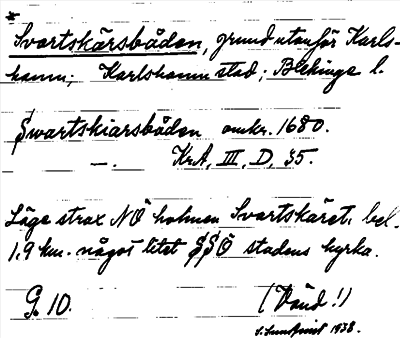 *
Svartskärsbåden, grund utanför Karls-
hamn; Karlshamn stad; Blekinge l.
Swartskiarsbåden omkr. 1680.
—. KrA, III, D, 35.
Läge strax NÖ holmen Svartskäret, bel.
1,9 km. något litet SSÖ stadens kyrka.
G. 10. (Vänd!)
1938.